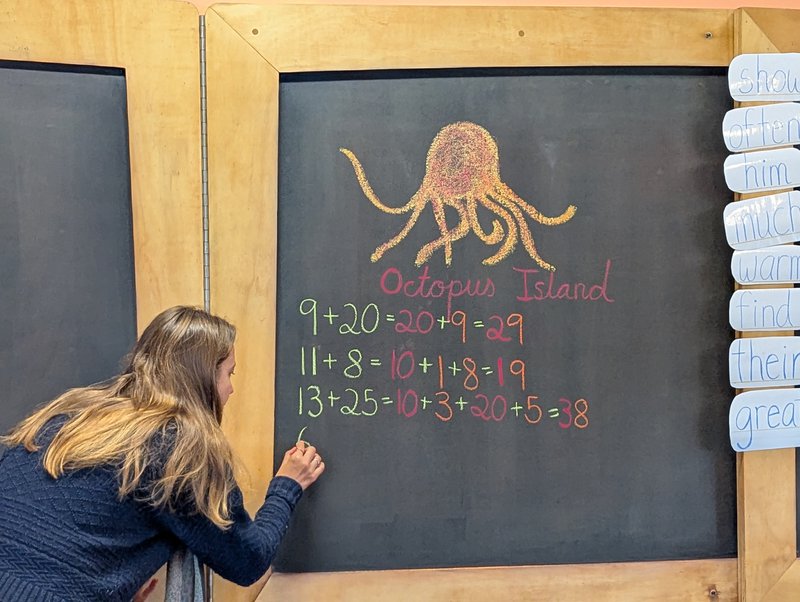 Octopus Island
9+20=20+9=29
11+8=10+1+8=19
13+25=10+3+20+5=38
show
often
him
much
warm
find
their
great